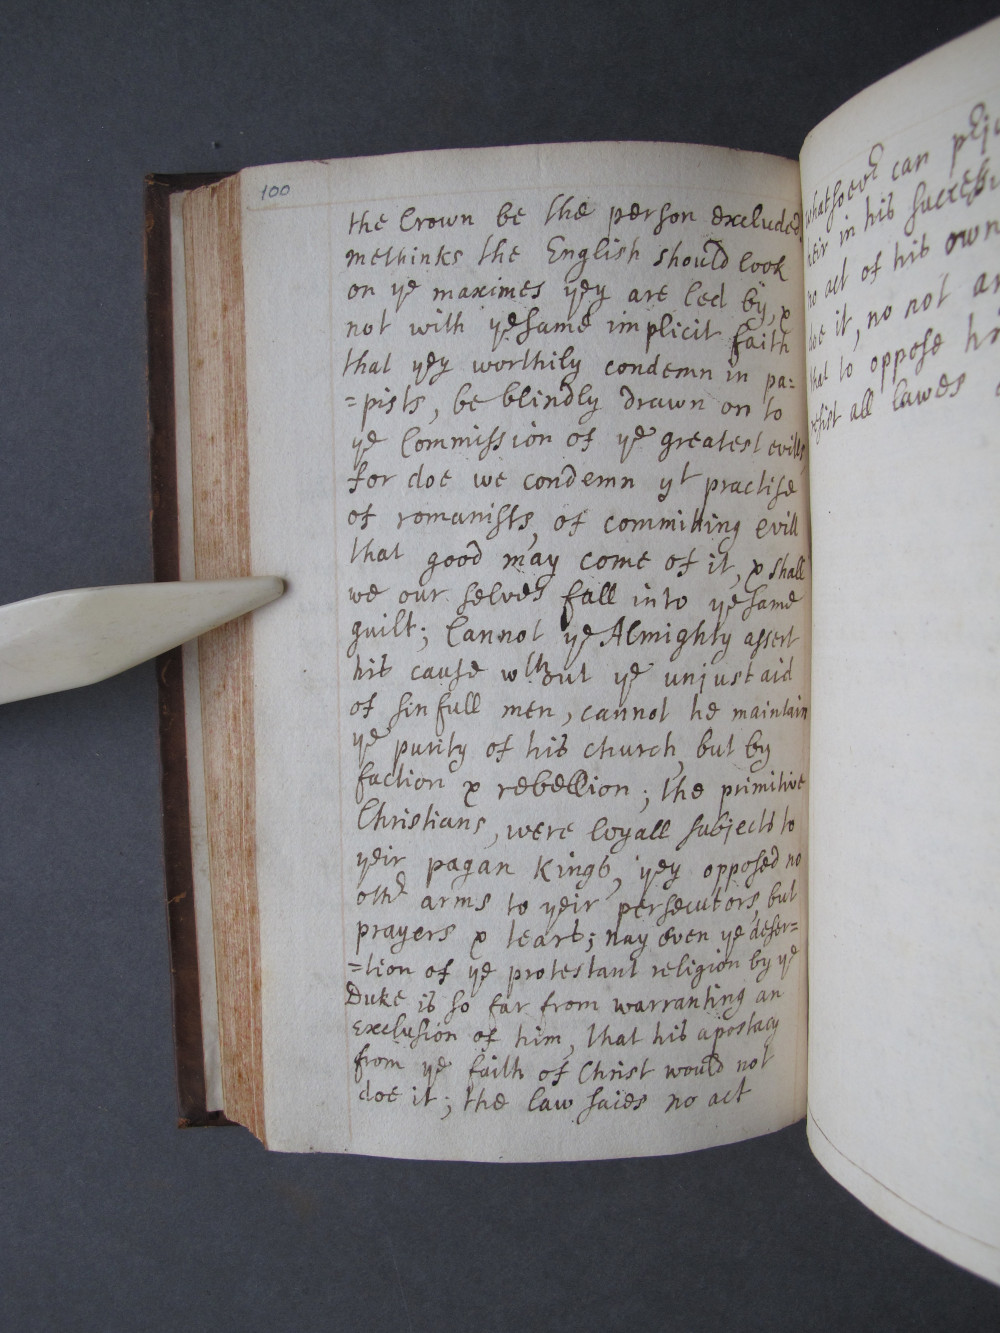 100
the Crown be the person excluded
methinks the English should look
on ye maximes yey are led by, &
not with ye same implicit faith
that yey worthily condemn in pa=
=pists, be blindly drawn on to
ye Commission of ye greatest evills
for doe we condemn yt practise
of romanists, of committing evill
that good may come of it, & shall
we our selves fall into ye same
guilt; Cannot ye Almighty assert
his cause wthout ye unjust aid
of sinfull men, cannot he maintain
ye purity of his church, but by
faction & rebellion; the primitive
Christians, were loyall subjects to
yeir pagan Kings, yey opposed no
othr arms to yeir persecutors, but
prayers & tears; nay even ye deser=
=tion of ye protestant religion by ye
Duke is so far from warranting an
exclusion of him, that his apostacy
from ye faith of Christ would not
doe it; the law saies no act
whatsoevr can
heir in his
no act of his own
doe it, no not
that to oppose
resist all lawes